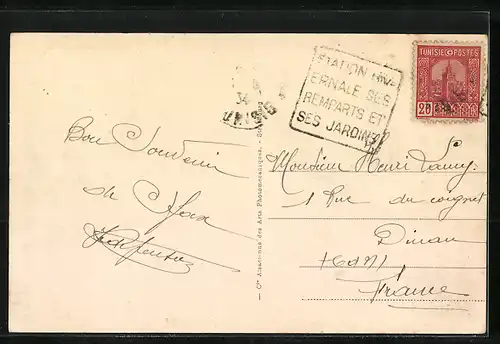 TUNISIE POSTES
20
34
TUNISIE
STATION HIV-
ERNALE SES
REMPARTS ET
SES JARDINS
Bon Souvenir
de Sfax
Monsieur Henri Lamy.
1 Rue du coignet
Dinan
France
— Cie Alsacienne des Arts Photomécaniques, Strasbourg